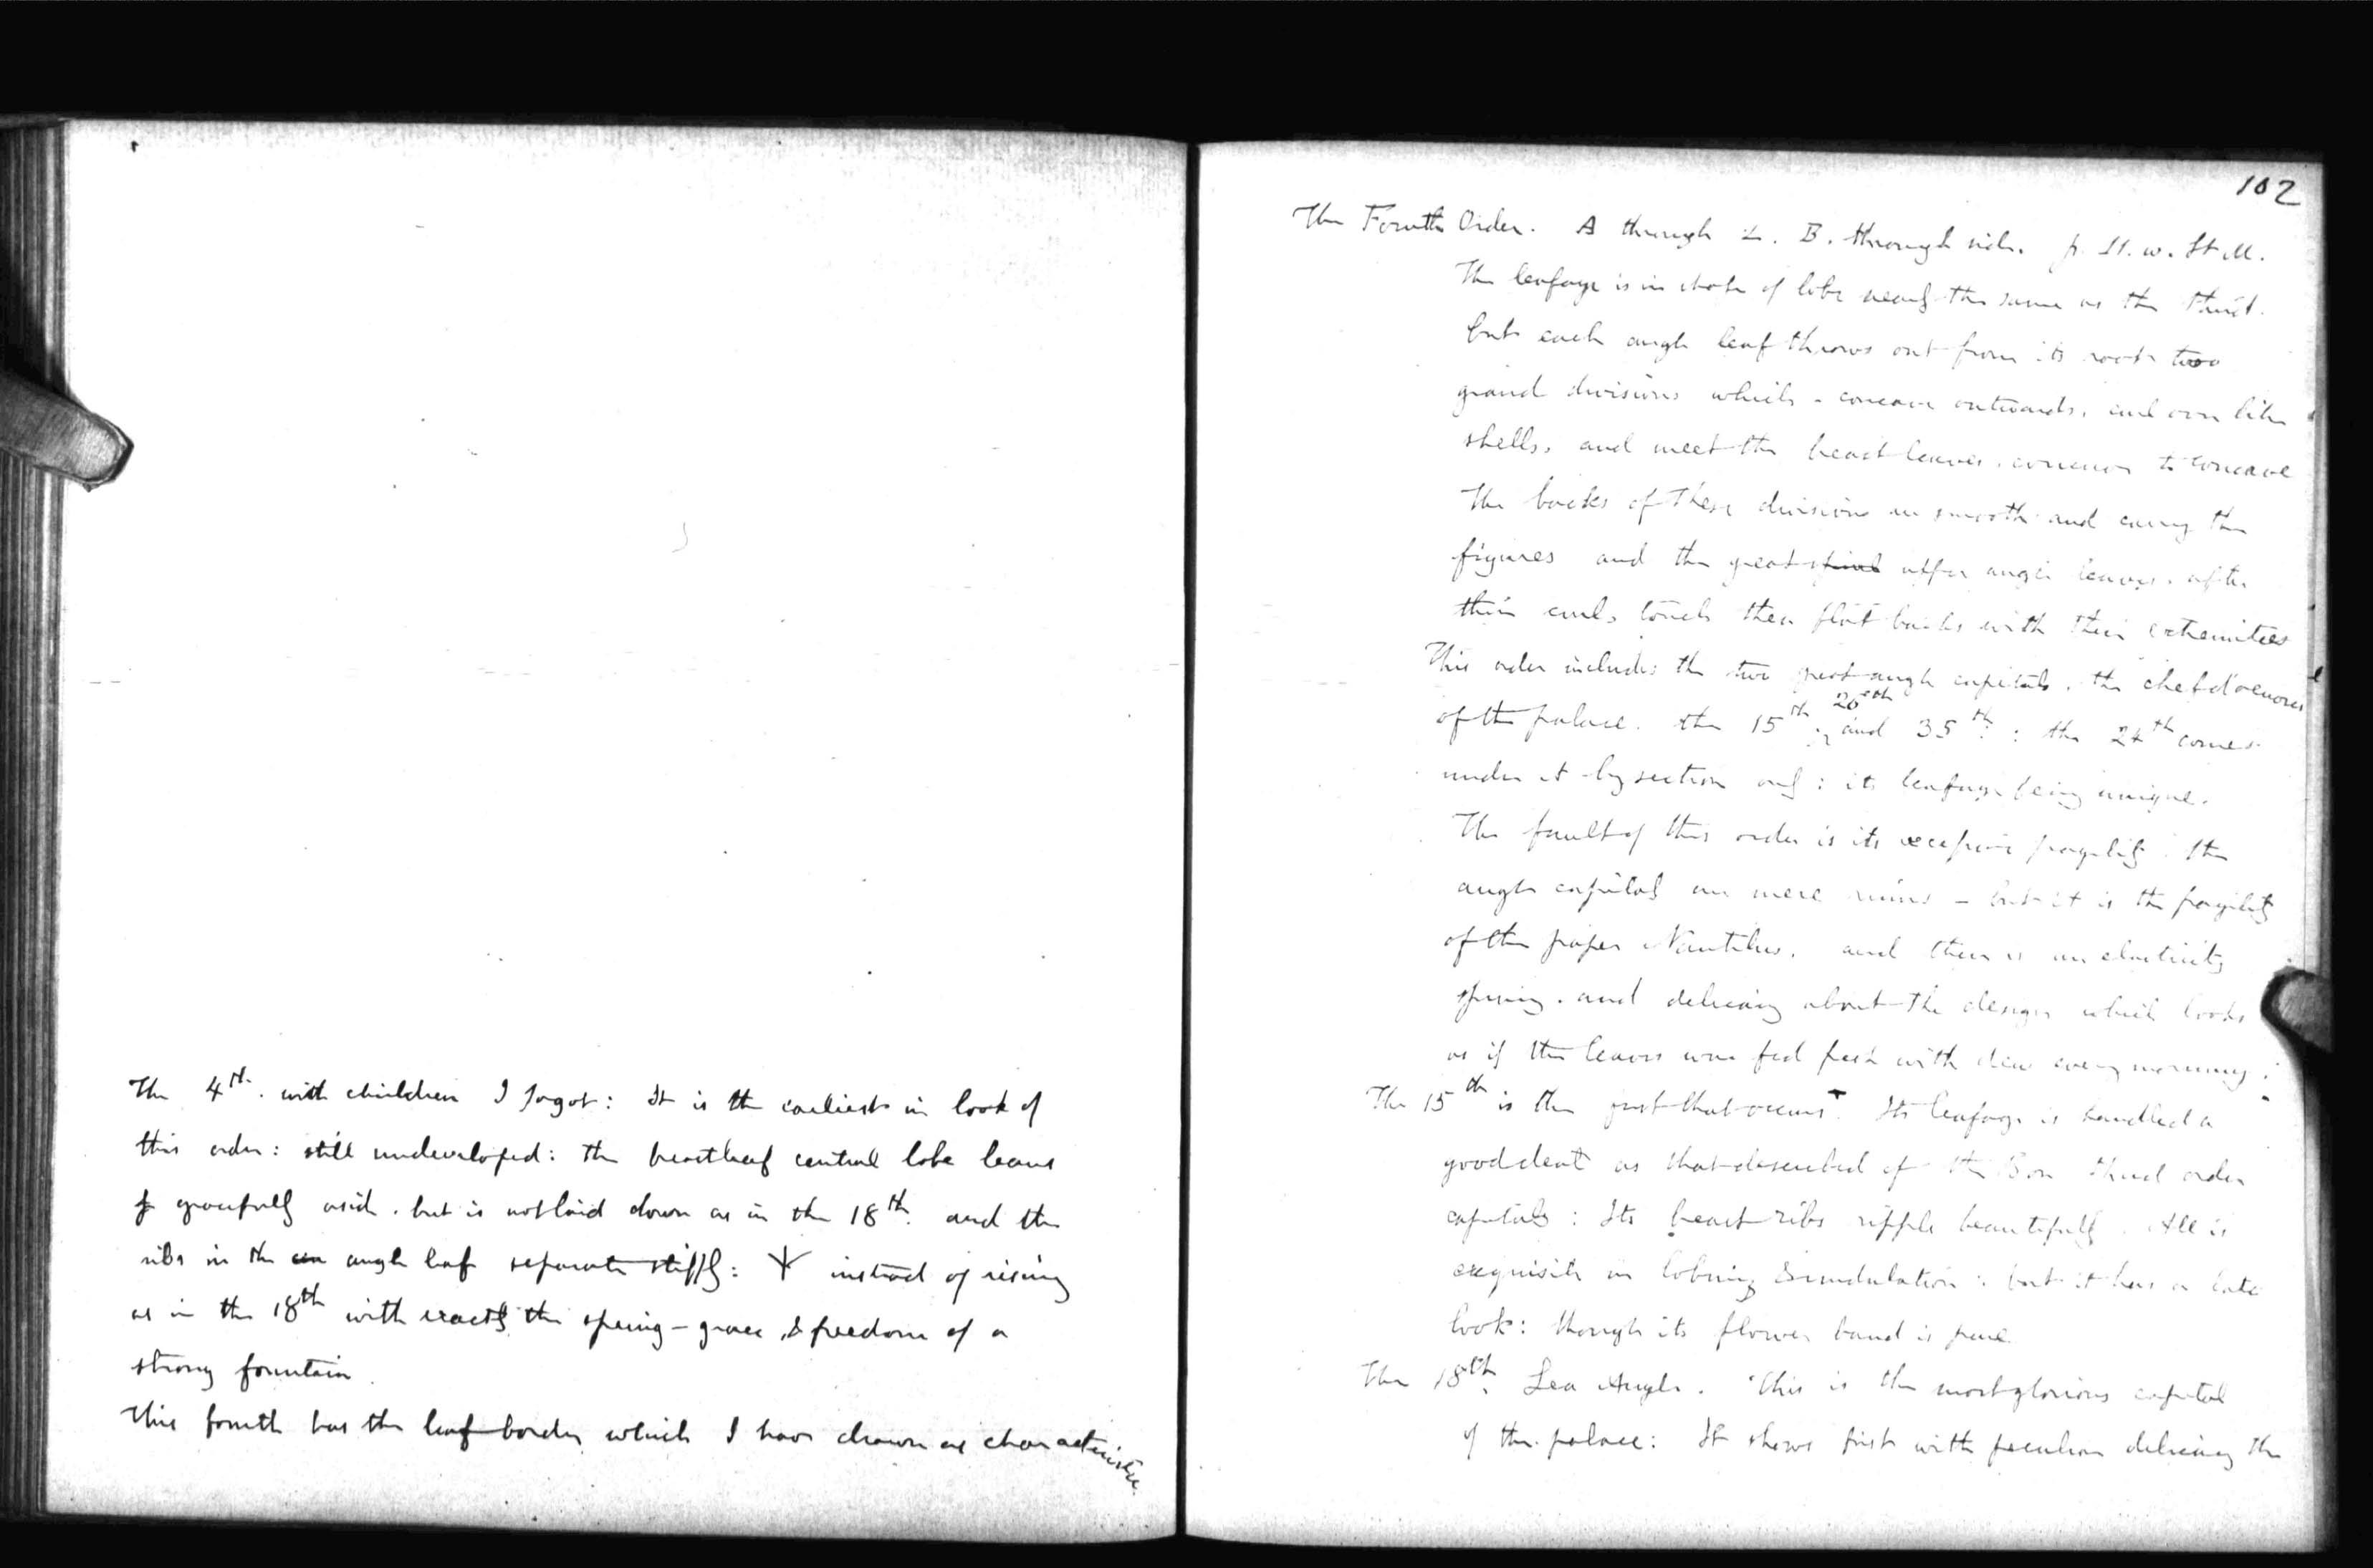 The 4th. with children I forgot: It is the earliest in look of
this order: still undeveloped: the breastleaf central lobe leans
gracefully aside. but is not laid down as in the 18th. and the
ribs in the angle leaf separate stiffly: instead of rising
as in the 18th with exactly the spring - grace, & freedom of a
strong fountain
This fourth has the leaf border which I have drawn as characteristic.
102
The Fourth Order. A through L. B. through side. p. 11. w. St M.
The leafage is in state of lobe nearly the same as the third.
but each angle leaf throws out from its root two
grand divisions which - concave outwards, curl over like
shells, and meet the breast leaves. concave to concave
The backs of these divisions are smooth and carry the
figures and the great upper angle leaves. after
their curl, touch their flat backs with their extremities
This order includes the two great angle capitals. the chef d'oeuvres
of the palace. the 15th. 20eth and 35th: the 24th comes
under it by section only: its leafage being unique.
The fault of this order is its excessive fragility. the
angle capitals are mere ruins - but it is the fragility
of the paper Nautilus. and there is an elasticity
spring. and delicacy about the design which looks
as if the leaves were fed fresh with dew every morning:
The 15th is the first that occurs. Its leafage is handled a
good deal as that described of the third order
capitals: Its breast ribs ripple beautifully. All is
exquisite in lobing & undulation: but it has a late
look: though its flower band is pure
The 18th. Sea Angle. This is the most glorious capital
of the palace: It shows first with peculiar delicacy the